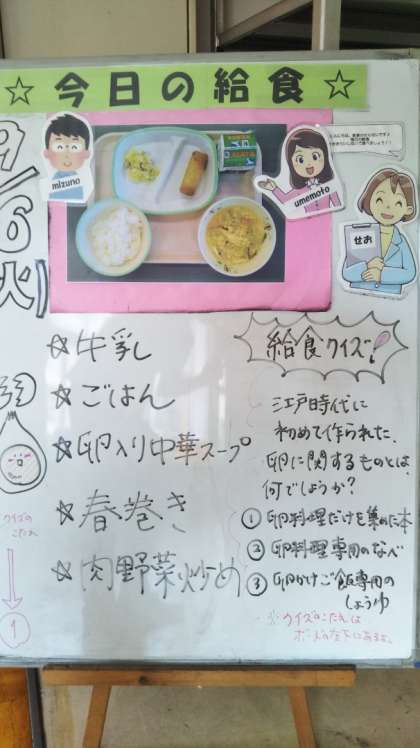 ☆ 今日の給食 ☆
9/6(火)
mizuno
umemoto
せお
☆牛乳
☆ごはん
☆卵入り中華スープ
☆春巻き
☆肉野菜炒め
給食クイズ!
江戸時代に
初めて作られた、
卵に関するものとは、
何でしょうか?
①卵料理だけを集めた本
②卵料理専用のなべ
③卵かけご飯専用の
しょうゆ
※クイズのこたえは
ボードの左下にあるよ。
クイズの
こたえ
①